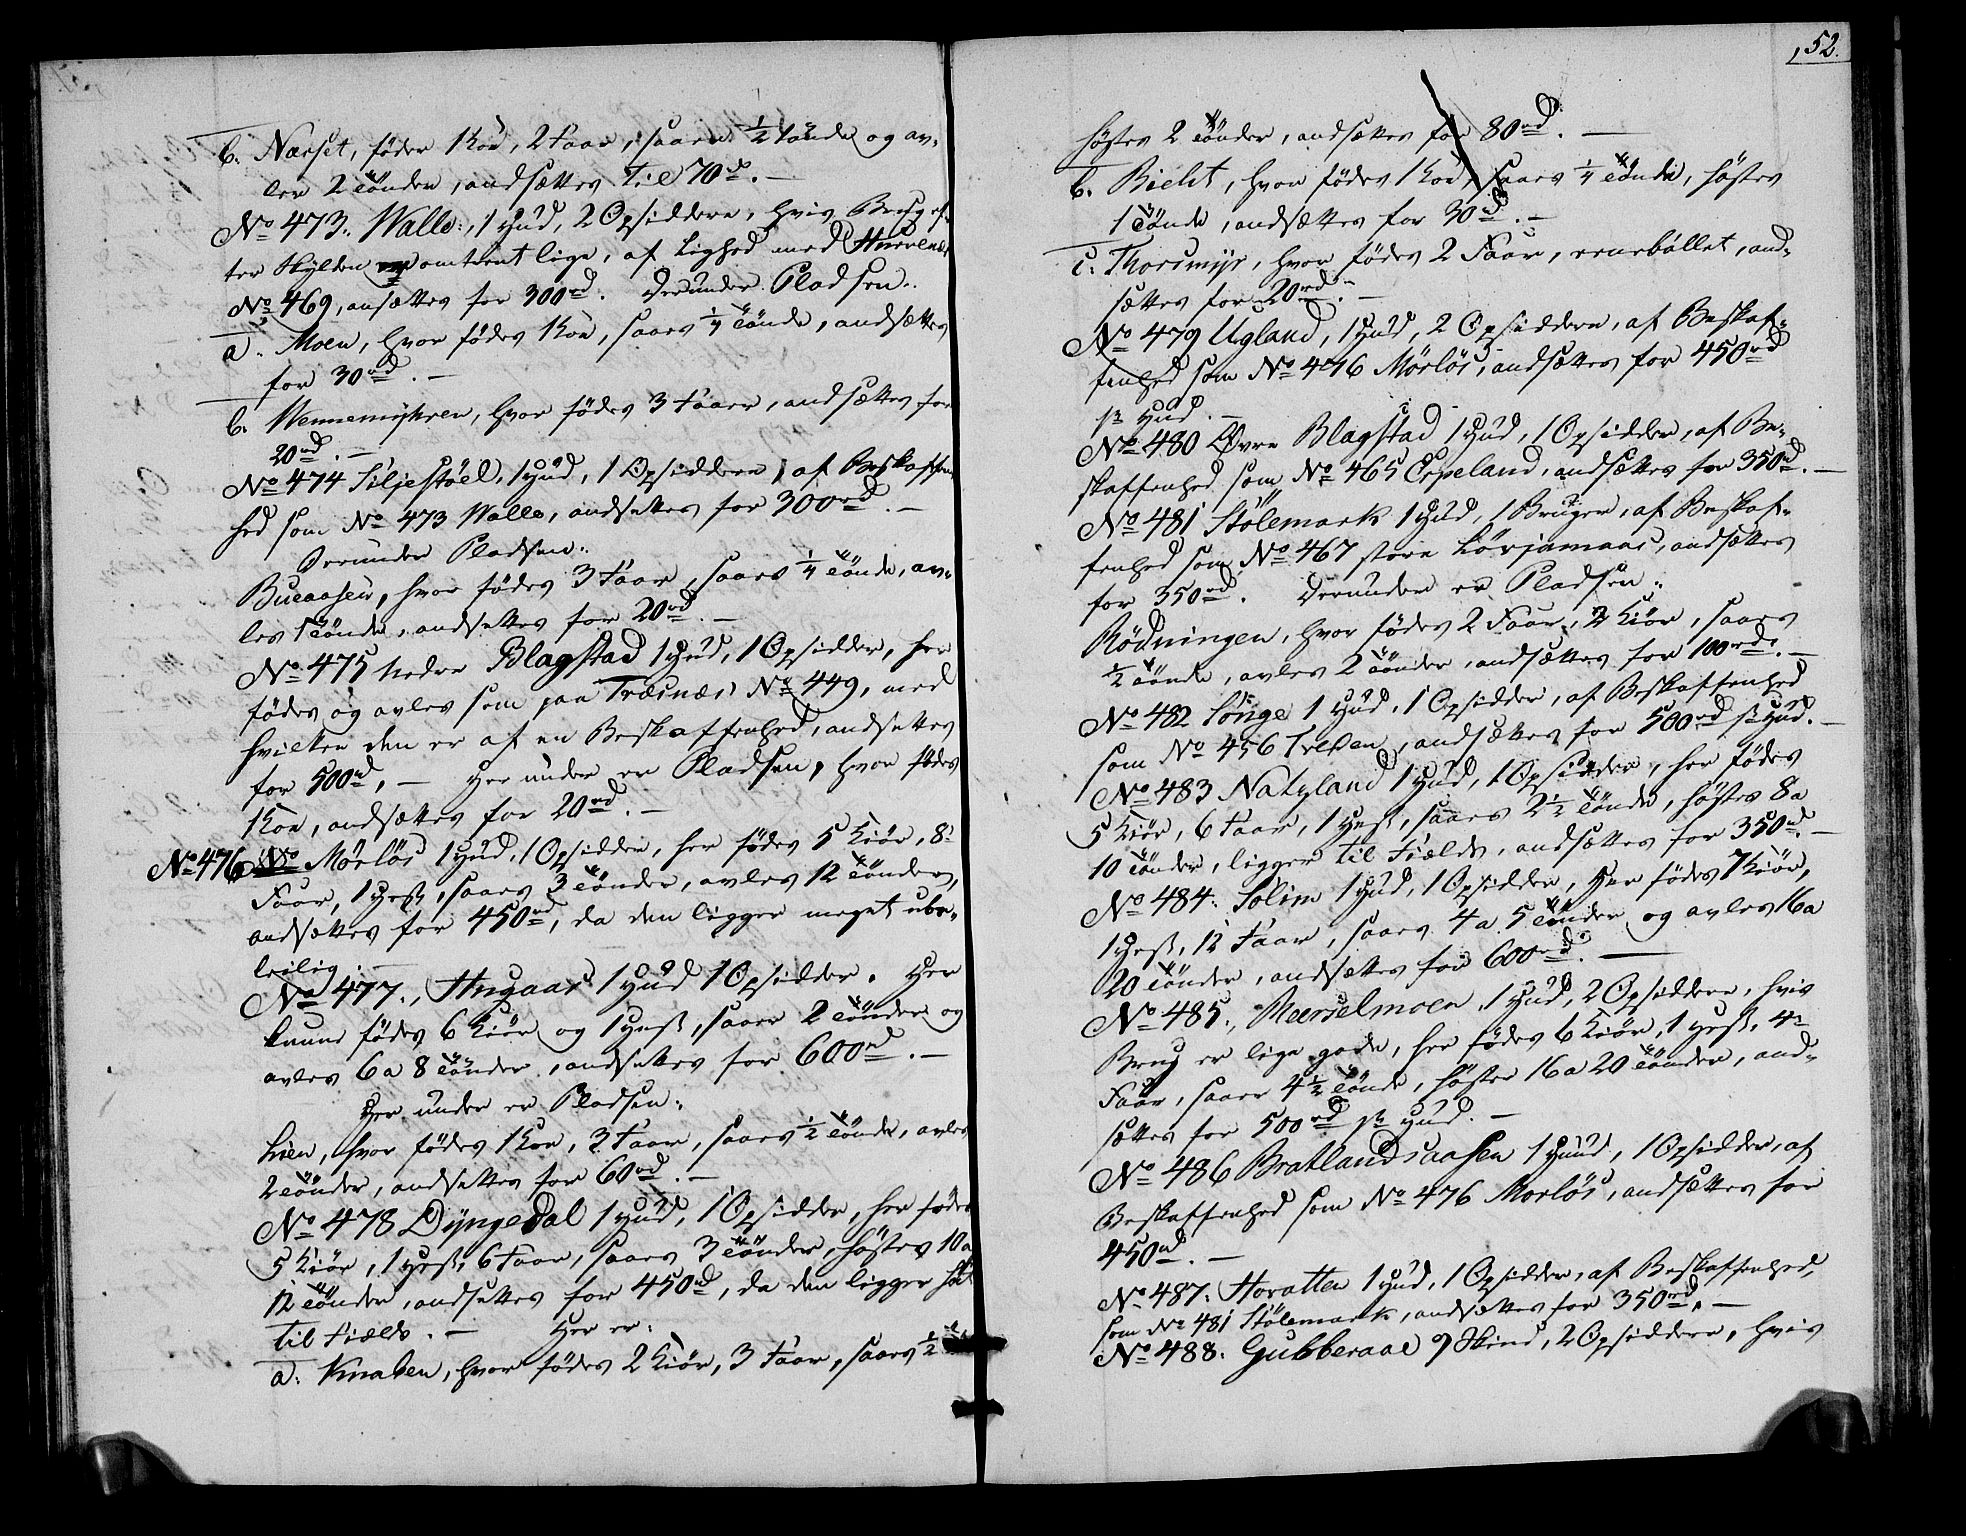 b. Narset, föder 1 Koe, 2 Faar, saaer ½ Tönde og av-
ler 2 Tönder, andsættes til 70rd. —
No 473. Walle, 1 Hud, 2 Opsiddere, hvis Brug ef-
ter Skylden omtrent lige, af Lighed med
No 469, ansættes for 300rd. Derunder Pladsen.
a. Moen, hvor födes 1 Koe, saaes ¼ Tönde, andsættes
for 30rd. —
b. Wennemyhren, hvor födes 3 Faar, andsættes for
20rd. —
No 474 Siljestöel, 1 Hud, 1 Opsiddere, af Beskaffen-
hed som No 473 Walle, andsættes for 300rd. —
Derunder Pladsen.
Bueaasen, hvor födes 3 Faar, saaes ¼ Tönde, av-
les 1 Tönde, andsættes for 20rd. —
No 475 Nedre Blagstad 1 Hud, 1 Opsidder, her
födes og avles som paa Træsnæs No 449, med
hvilken den er af en Beskaffenhed, andsættes
for 500rd. — Her under er Pladsen, hvor födes
1 Koe, andsættes for 20rd. —
No 476 Mörlös 1 Hud, 1 Opsidder, her födes 5 Kiör, 8
Faar, 1 Hest, saaes 3 Tönder, avles 12 Tönder,
andsættes for 450rd, da den ligger meget ube-
leilig. —
No 477. 1 Hud 1 Opsidder. Her
kuns födes 6 Kiör og 1 Hest, saaer 2 Tönder og
avles 6 a 8 Tönder, andsættes for 600rd. —
Her under er Pladsen.
Lien, hvor födes 1 Koe, 3 Faar, saaes ½ Tönde, avles
2 Tönder, andsættes for 60rd. —
No 478 Dyngedal 1 Hud, 1 Opsidder, her födes
5 Kiör, 1 Hest, 6 Faar, saaes 3 Tönder, höstes 10 a
12 Tönder, andsættes for 450rd, da den ligger
til Fields. — Her er.
a. Knaben, hvor födes 2 Kiör, 3 Faar, saaes ½
152.
höstes 2 Tönder, andsættes for 80rd. —
b. Bielet, hvor födes 1 Koe, saaes ¼ Tönde, höstes
1 Tönde, andsættes for 30rd. —
c. Thorsmyr, hvor födes 2 Faar, and-
sættes for 20rd. —
No 479 Ugland, 1 Hud, 2 Opsiddere, af Beskaf-
fenhed som No 476 Mörlös, andsættes for 450rd
pr Hud. —
No 480 Övre Blagstad 1 Hud, 1 Opsidder, af Be-
skaffenhed som No 465 Espeland, andsættes for 350rd. —
No 481 Stölemark 1 Hud, 1 Bruger, af Beskaf-
fenhed som No 467 store Lövjamaas, andsættes
for 350rd. Derunder er Pladsen.
Rödningen, hvor födes 2 Faar, 2 Kiör, saaes
½ Tönde, avles 2 Tönder, andsættes for 100rd. —
No 482 Songe 1 Hud, 1 Opsidder, af Beskaffenhed
som No 456 andsættes for 500rd pr Hud. —
No 483 Natyland 1 Hud, 1 Opsidder, her födes
5 Kiör, 6 Faar, 1 Hest, saaes 2½ Tönde, höstes 8 a
10 Tönder, ligger til Fields, andsættes for 350rd. —
No 484. Solim 1 Hud, 1 Opsidder, Her födes 7 Kiör,
1 Hest, 12 Faar, saaes 4 a 5 Tönder og avles 16 a
20 Tönder, andsættes for 600rd. —
No 485. Meerselmoen, 1 Hud, 2 Opsiddere, hvis
Brug er lige gode, her födes 6 Kiör, 1 Hest, 4
Faar, saaer 4½ Tönde, höster 16 a 20 Tönder, and-
sættes for 500rd pr Hud. —
No 486 Bratlandsaasen 1 Huud, 1 Opsidder, af
Beskaffenhed som No 476 Morlös, andsættes for
450rd. —
No 487. Hovatten 1 Hud, 1 Opsidder, af Beskaffenhed,
som No 481 Stölemark, andsættes for 350rd. —
No 488. Gubberaae 9 Skind, 2 Opsiddere, hvis